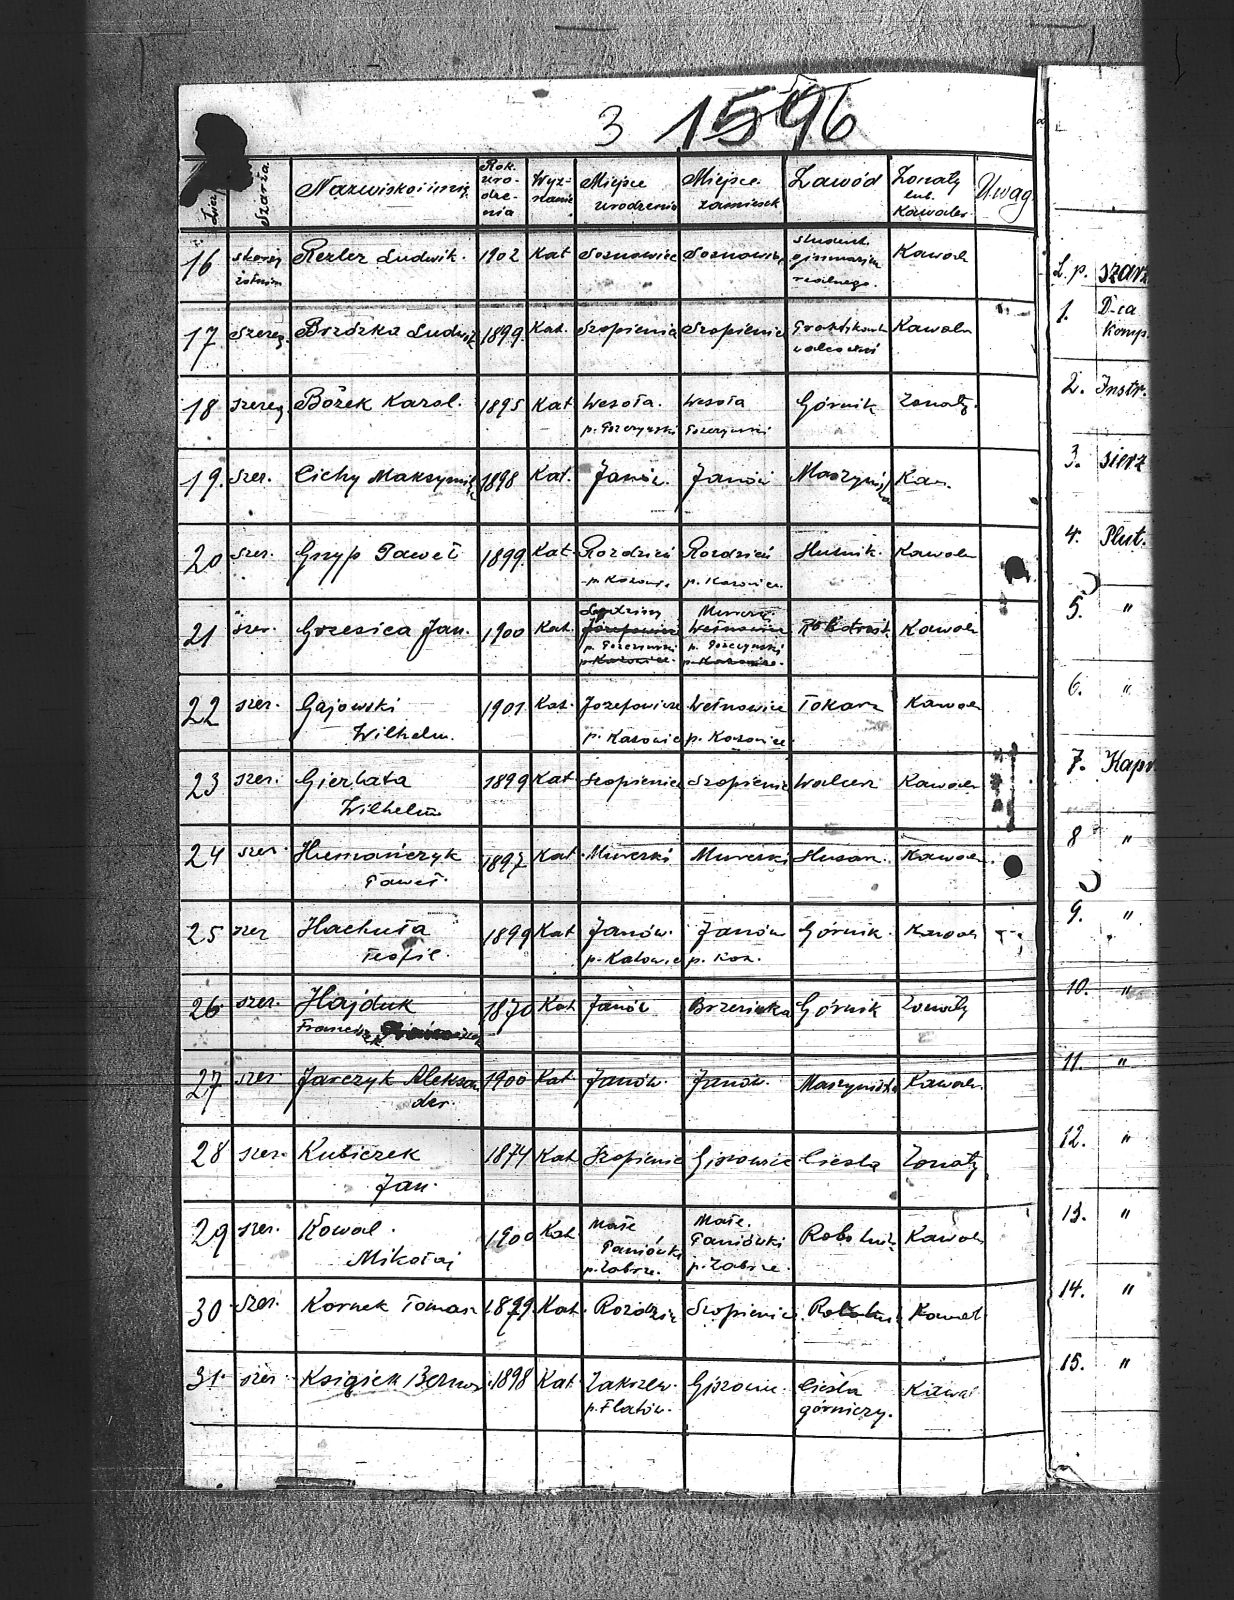 3 1596
Szarża. Nazwisko i imię. Rok uro-dze-nia Wyz-nanie. Miejsce urodzenia Miejsce zamieszk Zawód Żonaty lub. Kawaler Uwag
16 Rezler Ludwik. 1902 Kat Sosnowiec Sosnowiec student. gimnazjum realnego. Kawaler
17. Szereg. Brzózka Ludwik 1899. Kat. Szopienice Szopienice Kawaler
18 szereg. Bożek Karol. 1895 Kat Wesoła. p. Pszczyński Wesoła Pszczyński Górnik Żonaty.
19. szer. Cichy Maksymil 1898 Kat. Janów. Janów Maszynista Kaw.
20 szer. Gryp Paweł 1899. Kat. Rozdzień p. Katowice Rozdzień p. Katowice Hutnik. Kawaler
21 szer. Grzesica Jan. 1900 Kat. Lędziny Józefowiec p. Pszczyński p. Katowice. Murcki Wełnowiec p. Pszczyński p. Katowice. Robotnik Kawaler
22 szer. Gajowski Wilhelm. 1901 Kat. Józefowiec p. Katowice Wełnowiec p. Katowice Tokarz Kawaler
23 szer. Gierlata Wilhelm 1899 Kat Szopienice Szopienice Walcarz Kawaler
24 szer. Humańczyk Paweł. 1897 Kat. Murcki Murcki Kawaler.
25 szer Hachuła Teofil. 1899 Kat Janów. p. Katowice Janów p. Kat. Górnik. Kawaler
26 szer. Hajduk Franciszek 1870 Kat Janów Brzezinka Górnik Żonaty
27 szer Jarczyk Aleksander. 1900 Kat. Janów. Janów. Maszynista Kawaler.
28 szer. Kubiczek Jan. 1874 Kat Szopienice Giszowiec Cieśla Żonaty
29 szer. Kowal. Mikołaj 1900 Kat. Małe Paniówki p. Zabrze. Małe. Paniówki p. Zabrze. Robotnik Kawaler
30 szer. Kornek Tomasz 1879. Kat. Rozdzień Szopienice Robotnik Kawal.
31. szer. Książek 1898 Kat. Zakrzew. p. Flatów. Giszowiec. Cieśla górniczy. Kawal
L. p. szarż
1. D-ca Komp.
2. Instr.
3. sierż
4. Plut.
5. "
6. "
7. Kapr.
8 "
9. "
10. "
11. "
12. "
13. "
14. "
15. "